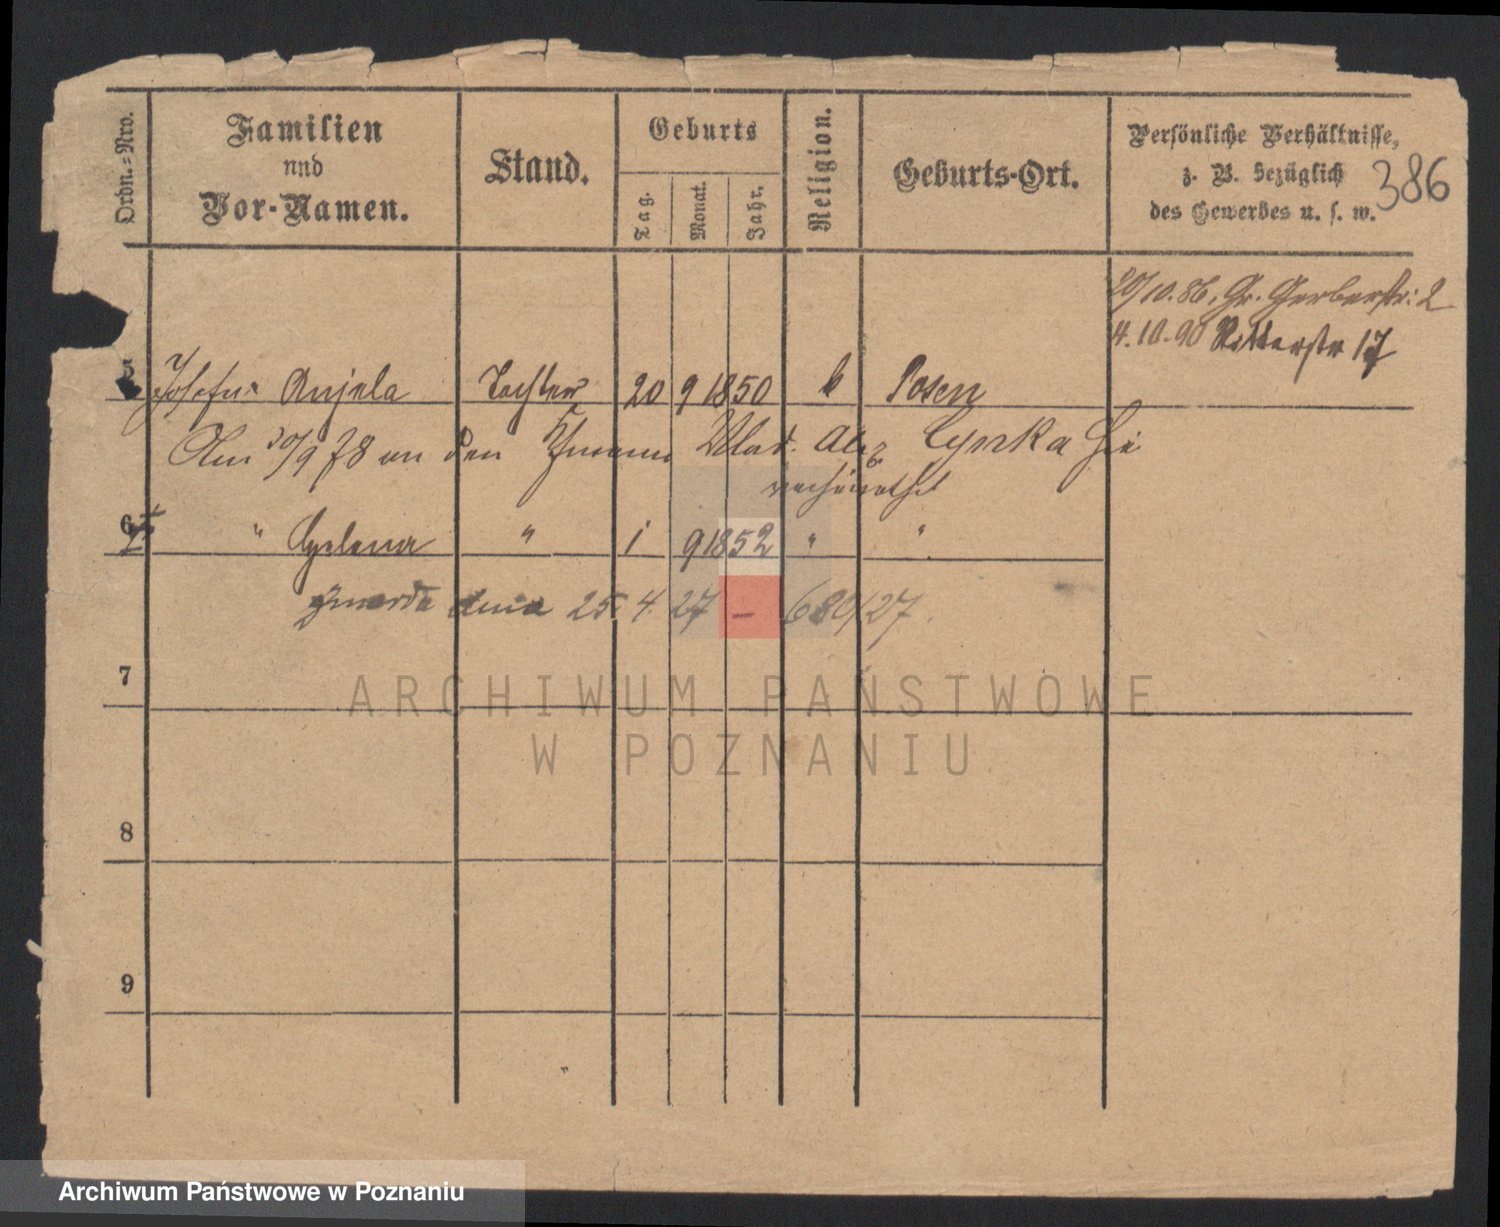 Ordn.=Nro.
Familien
und
Vor-Namen.
Stand.
Geburts
Tag.
Monat.
Jahr.
Religion.
Geburts-Ort.
Persönliche Verhältnisse,
z. B. bezüglich
des Gewerbes u. s. w.
386
20/10.86. Gr. Gerberstr: 2
4.10.90 Ritterstr 17
5 Angela Tochter 20 9 1850 k Posen
Am 30/9 78 an den Wlad. Alex
verheirathet
6 " Helena " 1 9 1852 " "
zmarła dnia 25. 4. 27 – 680/27
7
ARCHIWUM PAŃSTWOWE
W POZNANIU
8
9
Archiwum Państwowe w Poznaniu